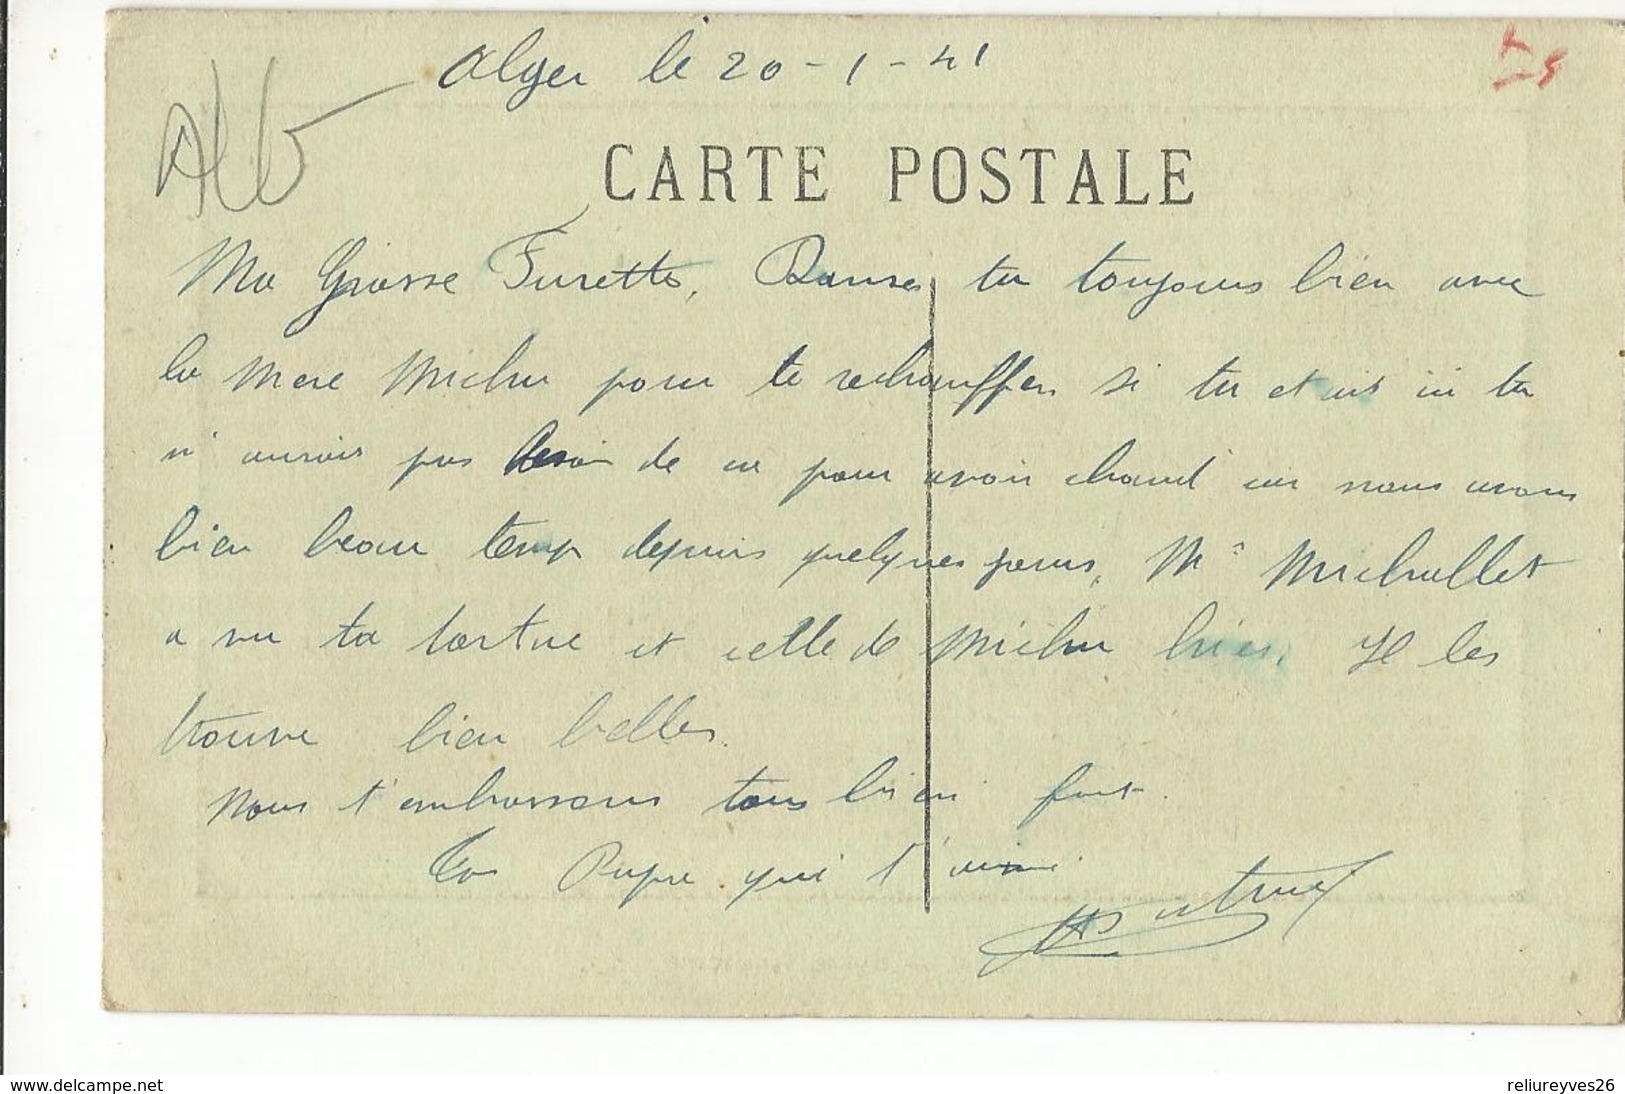 Alger le 20-1-41
Alb
CARTE POSTALE
Ma Grosse Furette, Danses tu toujours bien avec
la mere Michu pour te rechauffer si tu etais ici tu
n'aurais pas besoin de ca pour avoir chaud car nous avons
bien beau temps depuis quelques jours, Mr Michallet
a vu ta tortue et celle de Michu hier. Il les
trouve bien belles.
Nous t'embrassons tous bien fort.
Ton Pupre qui t'aime
www.delcampe.net
reliureyves26